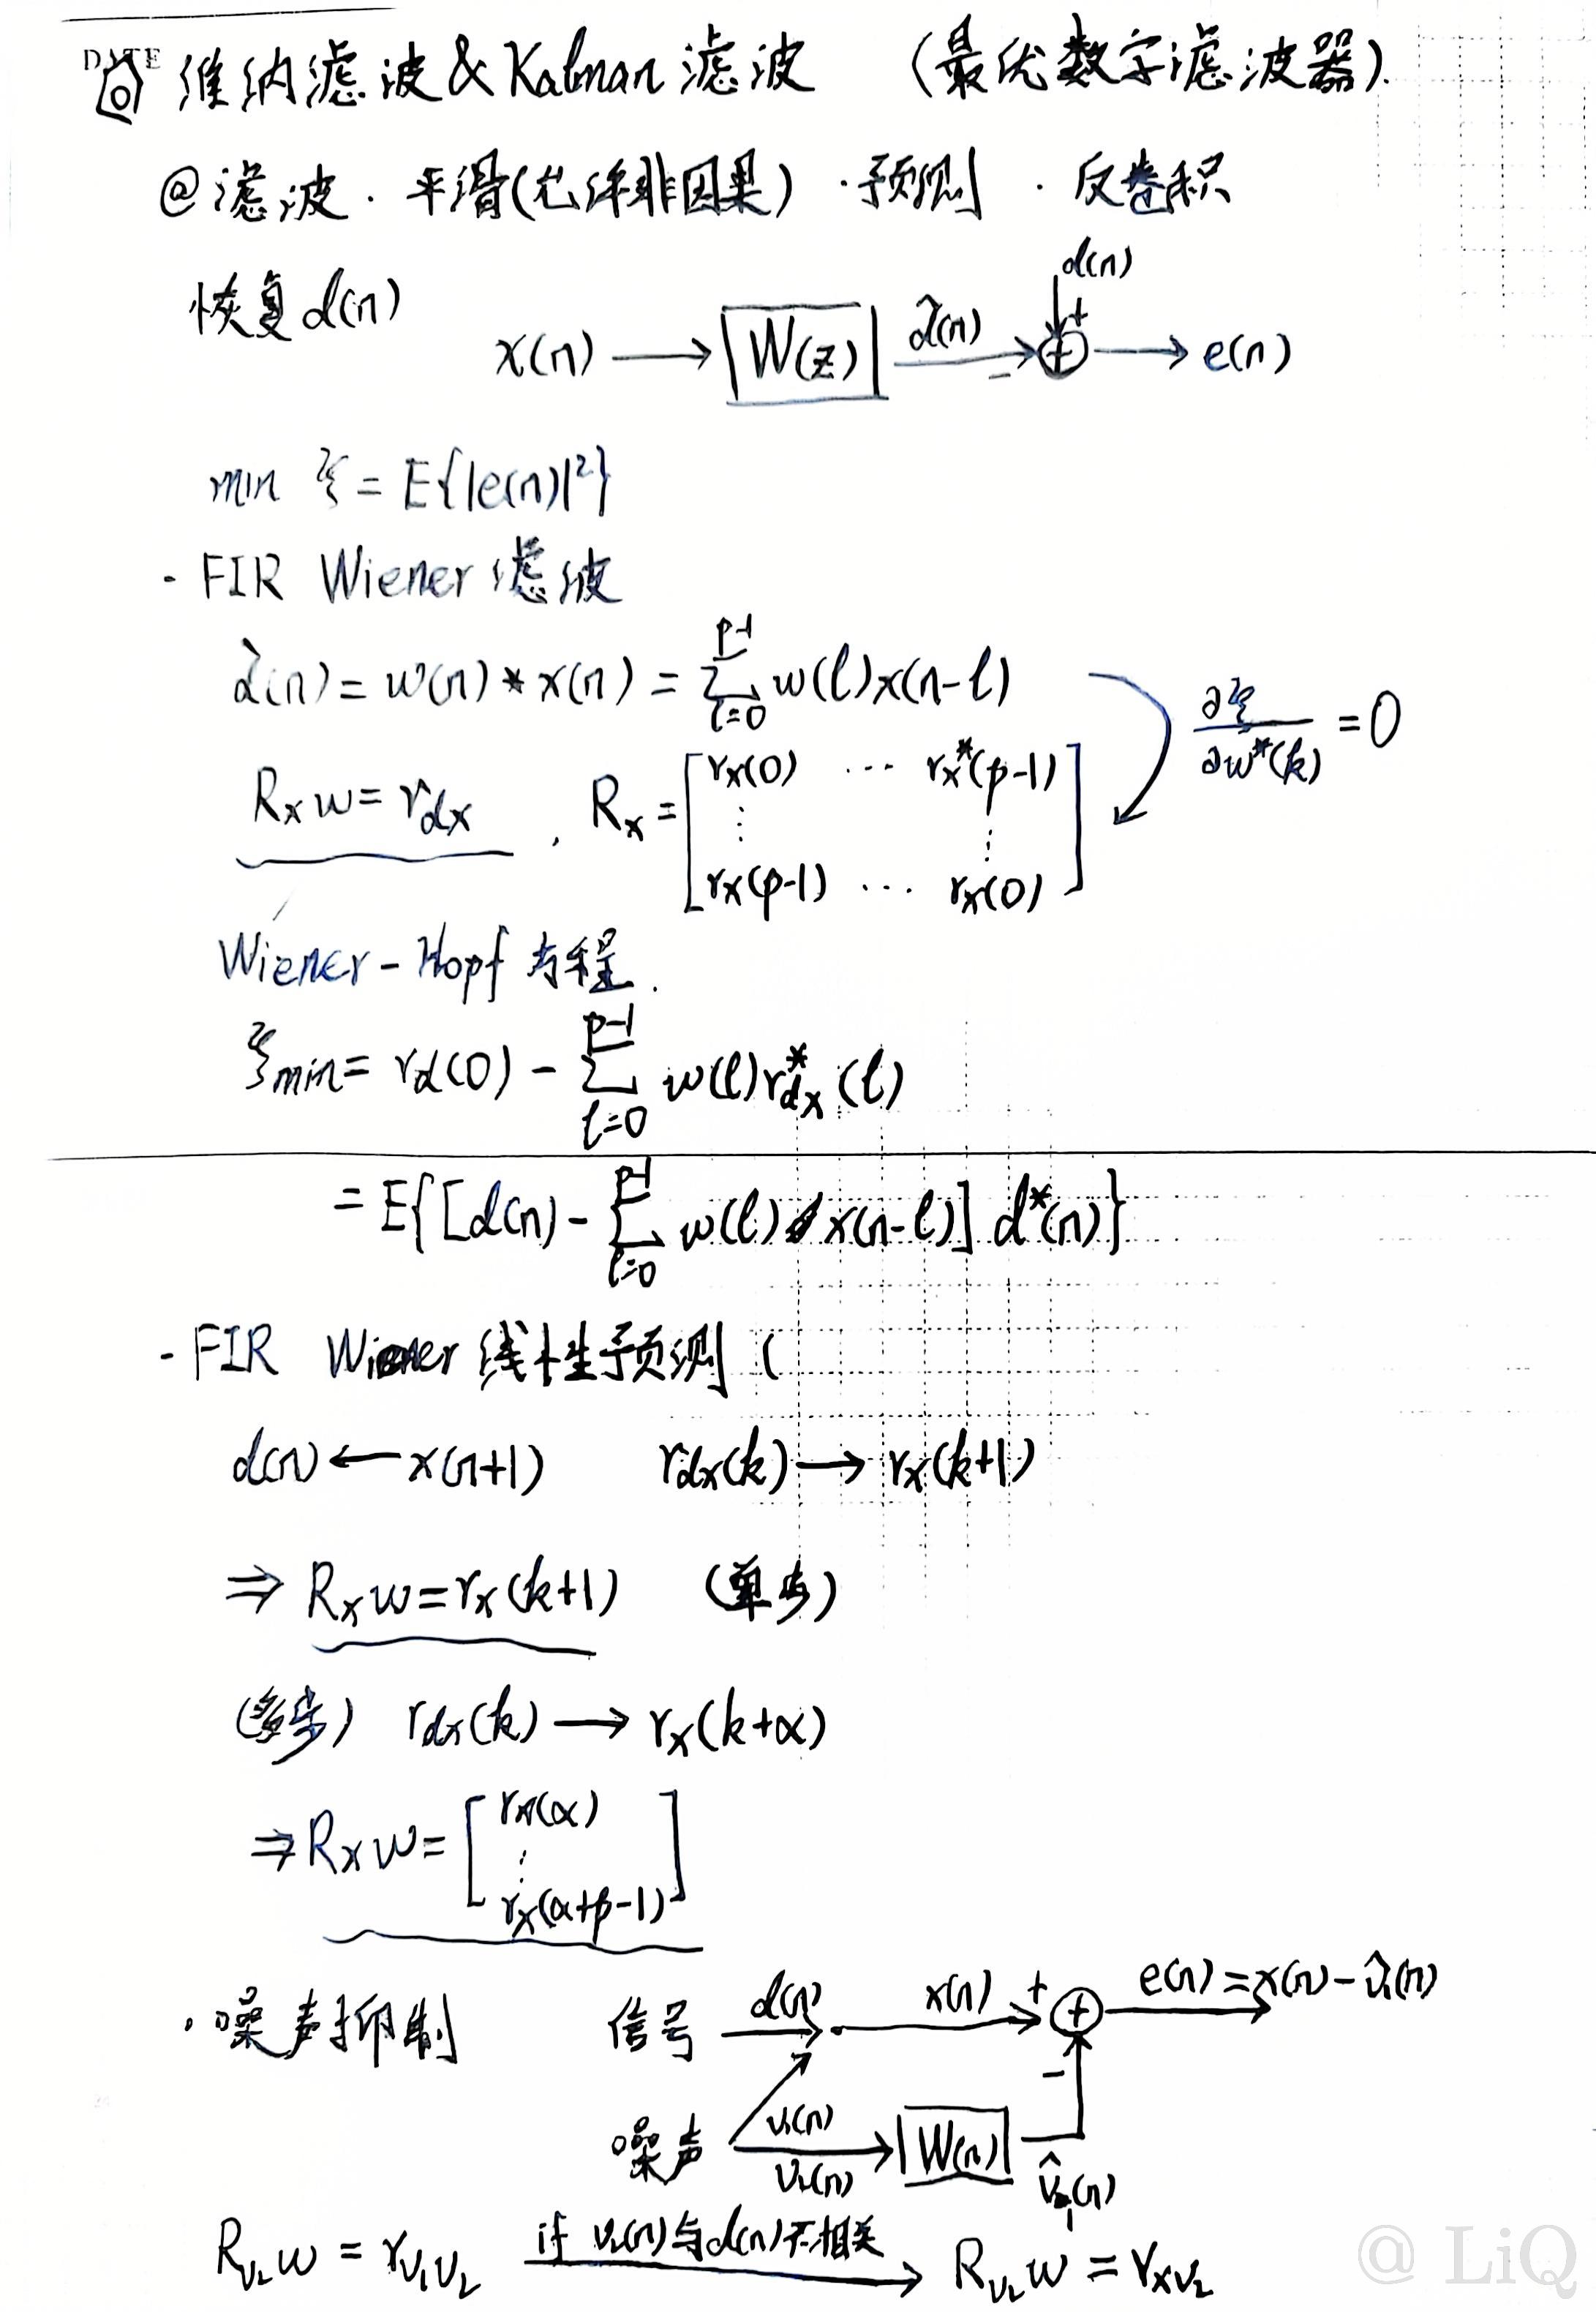 DATE
维纳滤波&Kalman滤波 (最优数字滤波器).
@滤波·平滑(允许非因果)·预测·反卷积
恢复d(n)
d(n)
x(n) → W(z) d̂(n) - + ⊕ → e(n)
min ξ = E{|e(n)|²}
- FIR Wiener 滤波
d̂(n) = w(n) * x(n) = Σ_{l=0}^{p-1} w(l)x(n-l)
∂ξ/∂w*(k) = 0
R_x w = r_dx , R_x = [r_x(0) ··· r_x*(p-1) ⋮ ⋮ r_x(p-1) ··· r_x(0)]
Wiener-Hopf 方程.
ξ_min = r_d(0) - Σ_{l=0}^{p-1} w(l)r*_dx(l)
= E{[d(n) - Σ_{l=0}^{p-1} w(l) x(n-l)] d*(n)}
- FIR Wiener 线性预测 (
d(n) ← x(n+1) r_dx(k) → r_x(k+1)
⇒ R_x w = r_x(k+1) (单步)
(多步) r_dx(k) → r_x(k+α)
⇒ R_x w = [r_x(α) ⋮ r_x(α+p-1)]
·噪声抑制
信号 d(n) x(n) + ⊕ e(n) = x(n) - v̂₁(n)
-
噪声 v₁(n) v₂(n) → W(n) v̂₁(n)
R_v₂ w = r_v₁v₂ if v₂(n)与d(n)不相关 → R_v₂ w = r_xv₂
@ LiQ